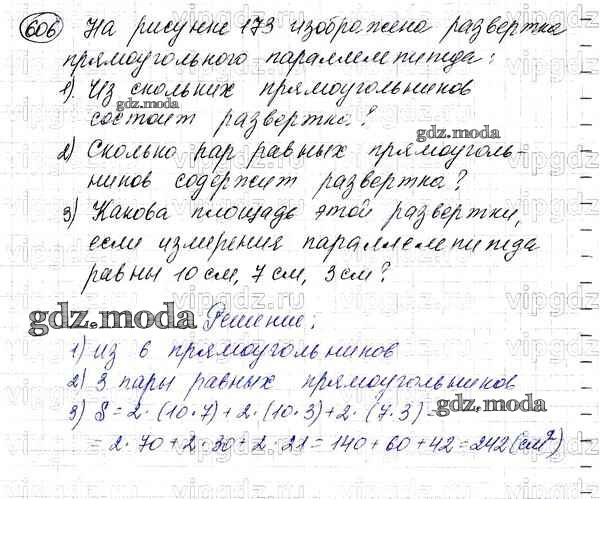 606 На рисунке 173 изображена развертка
прямоугольного параллелепипеда:
1) Из скольких прямоугольников
состоит развертка?
2) Сколько пар равных прямоуголь-
ников содержит развертка?
3) Какова площадь этой развертки,
если измерения параллелепипеда
равны 10 см, 7 см, 3 см?
gdz.moda Решение:
1) из 6 прямоугольников
2) 3 пары равных прямоугольников
3) S = 2·(10·7)+2·(10·3)+2·(7·3)=
= 2·70+2·30+2·21=140+60+42=242(см²)
gdz.moda
gdz.moda
gdz.moda
vipgdz.ru